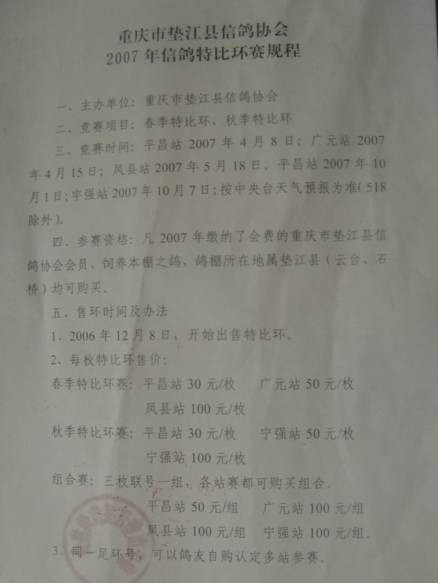 重庆市垫江县信鸽协会
2007年信鸽特比环赛规程
一、主办单位：重庆市垫江县信鸽协会
二、竞赛项目：春季特比环、秋季特比环
三、竞赛时间：平昌站 2007 年 4 月 8 日；广元站 2007
年 4 月 15 日；凤县站 2007 年 5 月 18 日、平昌站 2007 年 10
月1日；宇强站2007年10月7日；按中央台天气预报为准（518
除外）。
四、参赛资格：凡 2007 年缴纳了会费的重庆市垫江县信
鸽协会会员，饲养本棚之鸽，鸽棚所在地属垫江县（云台、石
桥）均可购买。
五、售环时间及办法
1、2006 年 12 月 8 日，开始出售特比环。
2、每枚特比环售价：
春季特比环赛：平昌站 30 元/枚 广元站 50 元/枚
凤县站 100 元/枚
秋季特比环赛：平昌站 30 元/枚 宁强站 50 元/枚
宁强站 100 元/枚
组合赛：三枚联号一组，各站赛都可购买组合。
平昌站 50 元/组 广元站 100 元/组
凤县站 100 元/组 宁强站 100 元/组。
3、同一足环号，可以鸽友自购认定多站参赛。